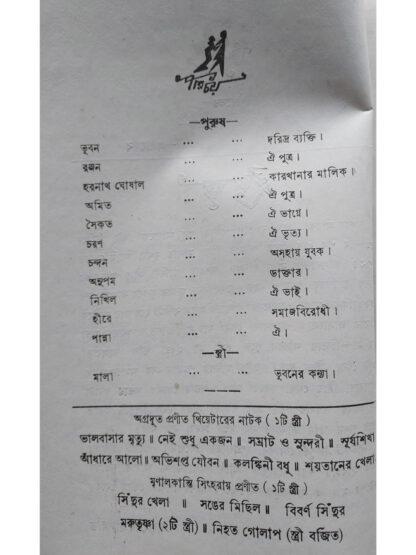 পরিচয়
—পুরুষ—
ভূবন ... ... দরিদ্র ব্যক্তি।
রঞ্জন ... ... ঐ পুত্র।
হরনাথ ঘোষাল ... ... কারখানার মালিক।
অমিত ... ... ঐ পুত্র।
সৈকত ... ... ঐ ভাগ্নে।
চরণ ... ... ঐ ভৃত্য।
চন্দন ... ... অসহায় যুবক।
অনুপম ... ... ডাক্তার।
নিখিল ... ... ঐ ভাই।
হীরে ... ... সমাজবিরোধী।
পান্না ... ... ঐ।
—স্ত্রী—
মালা ... ... ভূবনের কন্যা।
অগ্রদূত প্রণীত থিয়েটারের নাটক ( ১টি স্ত্রী )
ভালবাসার মৃত্যু ॥ নেই শুধু একজন ॥ সম্রাট ও সুন্দরী ॥ সূর্যশিখা
আঁধারে আলো ॥ অভিশপ্ত যৌবন ॥ কলঙ্কিনী বধূ ॥ শয়তানের খেলা
মৃণালকান্তি সিংহরায় প্রণীত ( ১টি স্ত্রী )
সিঁদুর খেলা ॥ সঙের মিছিল ॥ বিবর্ণ সিঁদুর
মরুতৃষ্ণা (২টি স্ত্রী) ॥ নিহত গোলাপ (স্ত্রী বর্জিত)